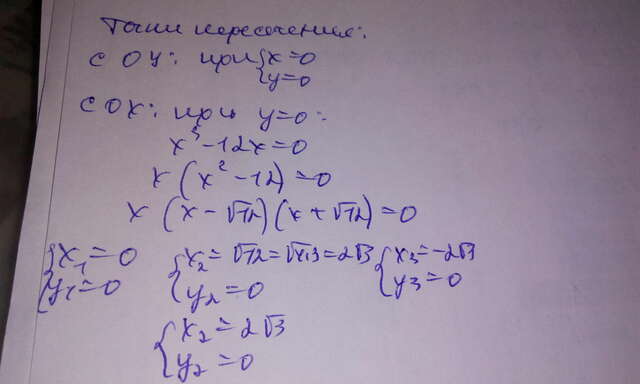 Точки пересечения:
с OY: при {x=0
{y=0
с OX: при y=0:
x³-12x=0
x(x²-12)=0
x(x-√12)(x+√12)=0
{x₁=0 {x₂=√12=√4·3=2√3 {x₃=-2√3
{y₁=0 {y₂=0 {y₃=0
{x₂=2√3
{y₂=0